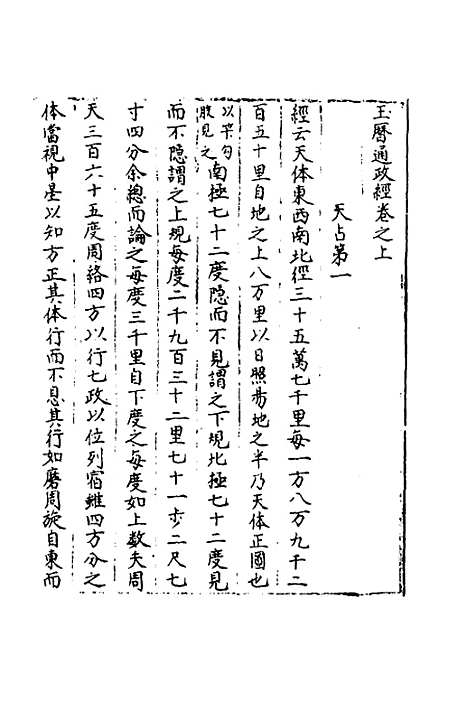 玉曆通政經卷之上
天占第一
經云天体東西南北徑三十五萬七千里每一方八万九千二
百五十里自地之上八万里以日照昜地之半乃天体正圓也
以筭勾股見之南極七十二度隐而不見謂之下規北極七十二度見
而不隐謂之上規每度二千九百三十二里七十一步二尺七
寸四分余總而論之每度三千里自下度之每度如上数夫周
天三百六十五度周絡四方以行七政以位列宿雖四方分之
体當視中星以知方正其体行而不息其行如磨周旋自東而